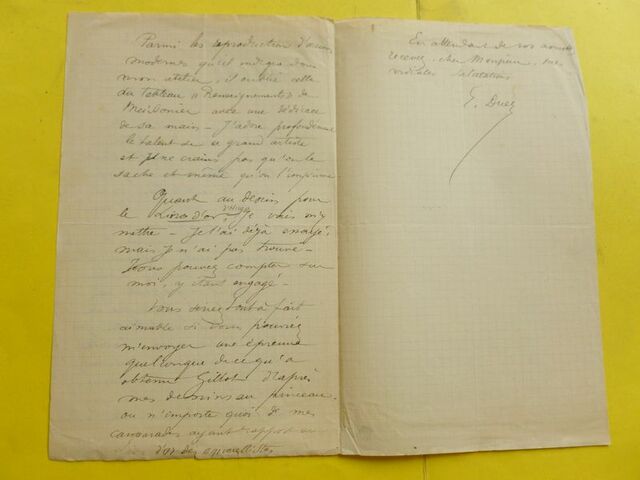 Parmi les reproduction d'œuvres
modernes qu'il indiqua dans
mon atelier, il oublie celle
du tableau "Renseignements" de
Meissonier avec une dédicace
de sa main - J'adore profondément
le talent de ce grand artiste
et je ne crains pas qu'on le
sache et même qu'on l'imprime
Quant au dessin pour
le Livre d'or d'Hugo, Je vais m'y
mettre - Je l'ai déjà essayé,
mais je n'ai pas trouvé -
Vous pouvez compter sur
moi, y étant engagé -
Vous seriez tout à fait
aimable si vous pouviez
m'envoyer une épreuve
quelconque de ce qu'a
obtenu Gillot d'après
mes dessins au pinceau
ou n'importe quoi de mes
camarades ayant rapport au
d'or des aquarellistes
En attendant de vos nouvelles
recevez, cher Monsieur, mes
cordiales salutations
E. Duez